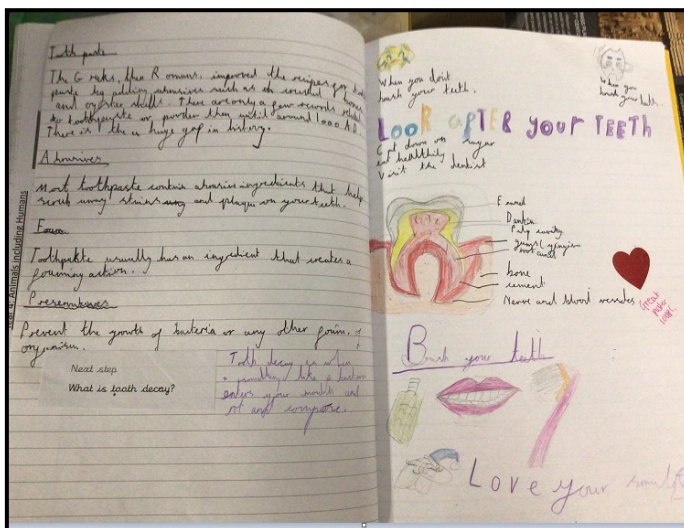 Tooth paste
The Greeks, then Romans, improved the recipes for tooth
paste by adding abrasives such as crushed bones
and oyster shells. There are only a few records related
to toothpaste or powder then until around 1000 A.D.
There is the a huge gap in history.
Abrasives
Most toothpaste contain abrasive ingredients that help
scrub away stains and plaque on your teeth.
Foam
Toothpaste usually has an ingredient that creates a
foaming action.
Preservatives
Prevent the growth of bacteria or any other
organism.
Next step
What is tooth decay?
Tooth decay is when
enters your mouth and
rot and
Year 4: Animals including Humans
When you don't
brush your teeth.
When you
brush your teeth.
LOOK AFTER your TEETH
Cut down on sugar
eat healthily
Visit the dentist
Enamel
Dentin
Pulp cavity
gums
bone
cement
Nerve and blood vessels
Great
Brush your teeth
Love your